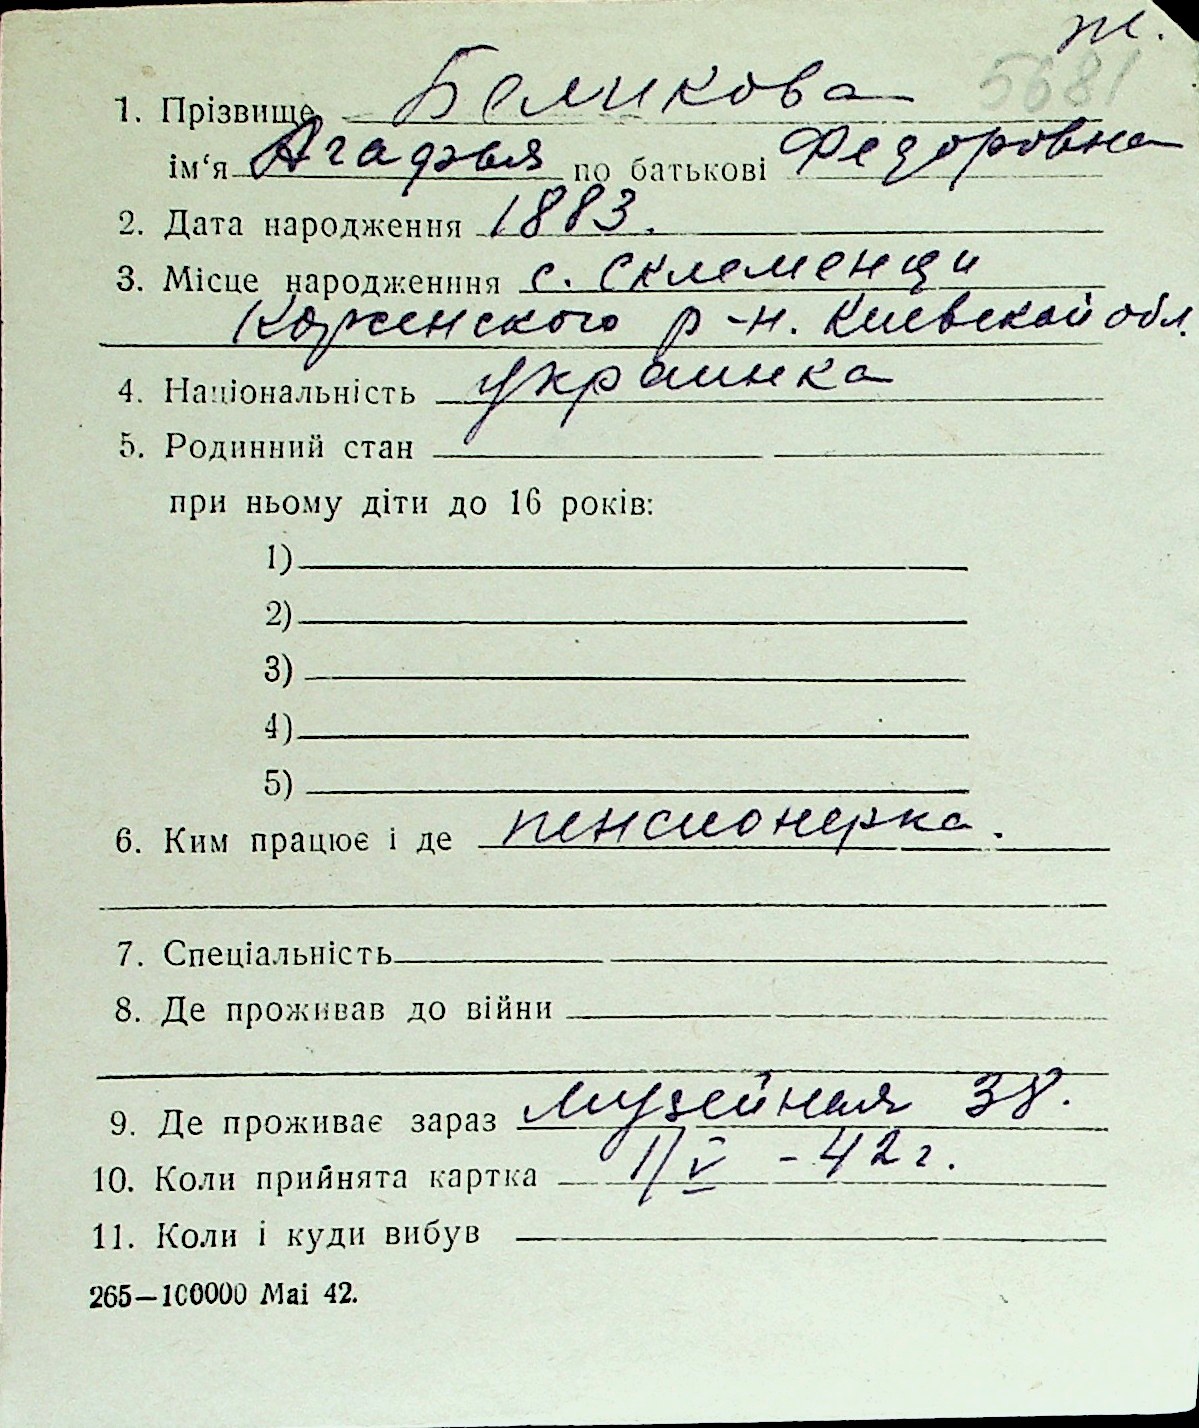 ж.
5681
1. Прізвище Беликова
ім‘я Агафья по батькові Федоровна
2. Дата народження 1883.
3. Місце народженння с. Склеменци
Корженского р-н. Киевской обл.
4. Національність украинка
5. Родинний стан
при ньому діти до 16 років:
1)
2)
3)
4)
5)
6. Ким працює і де пенсионерка.
7. Спеціальність
8. Де проживав до війни
9. Де проживає зараз Музейная 38.
10. Коли прийнята картка 1/V - 42 г.
11. Коли і куди вибув
265—100000 Mai 42.